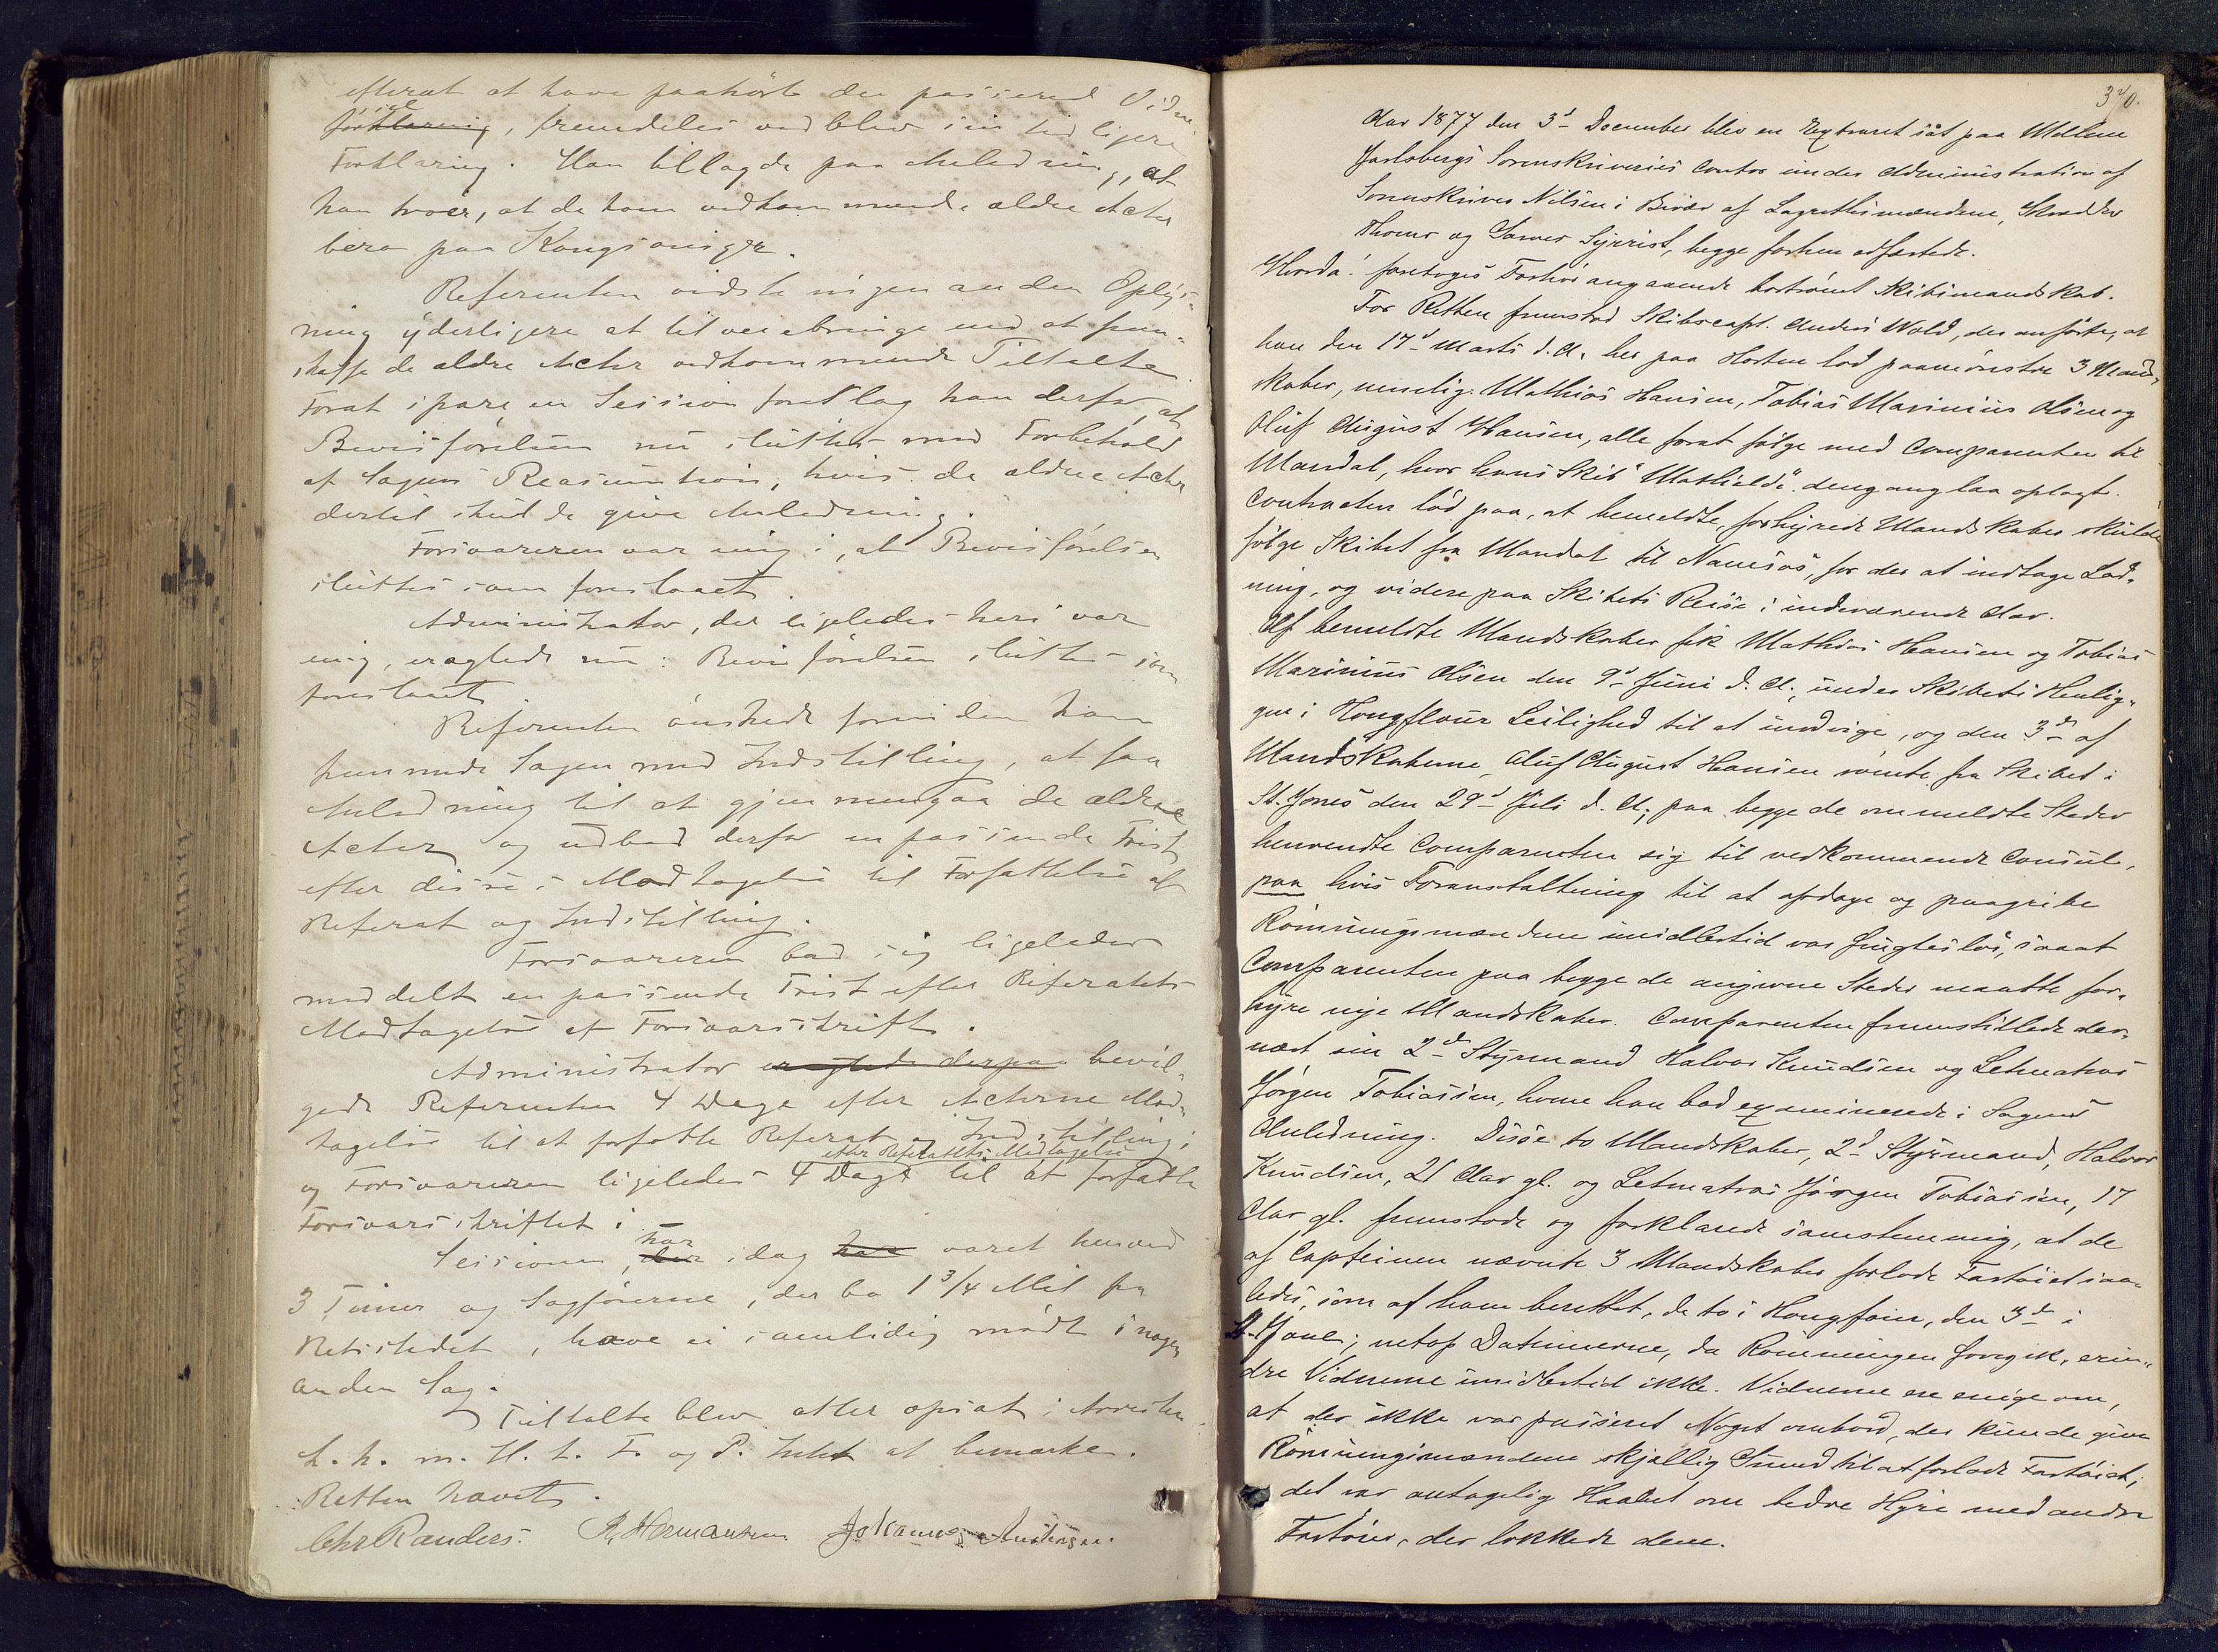 efterat at have paahørt den passerede Vidne-
sigel
forklaring, fremdeles ved blev sin tidligere
Forklaring. Han tillagde paa Anledning, at
han troer, at de ham vedkommende ældre Acter
bero paa Kongsvinger.
Referenten vidste ingen anden Oplys-
ning yderligere at tilveiebringe end at frem-
skaffe de ældre Acter vedkommende Tiltalte.
Forat spare en Session foreslog han derfor, at
Bevisførelsen nu sluttes med Forbehold
af Sagens Reasumtion, hvis de ældre Acter
dertil skulde give Anledning.
Forsvareren var enig i, at Bevisførelsen
sluttes som foreslaaet.
Administrator, der ligeledes heri var
enig, eragtede nu: Bevisførelsen sluttes som
foreslaaet.
Referenten ønskede forinden han
fremmede Sagen med Indstilling, at faa
Anledning til at gjennemgaa de ældre
Acter og udbad derfor en passende Frist
efter disses Modtagelse til Forfattelse af
Referat og Indstilling.
Forsvareren bad sig ligeledes
meddelt en passende Frist efter Referatets
Modtagelse af Forsvarsskrift.
Administrator eragtede derpaa bevil-
gede Referenten 4 Dage efter Acternes Mod-
tagelse til at forfatte Referat og Indstilling;
efter Referatets Modtagelse
og Forsvareren ligeledes 4 Dage til at forfatte
Forsvarsskriftet;
har
Sessionen, der idag har varet henved
3 Timer og Sagførerne, der bo 1 3/4 Mil fra
Retsstedet, have ei samtidig mødt i nogen
anden Sag.
Tiltalte blev atter opsat i Arresten
h. h. m. H. t. F. og P. Intet at bemærke.
Retten hævet.
Chr Randers. R, Hermansen Johannes Andersen.
370.
Aar 1877 den 3d December blev en Extraret sat paa Mellem
Jarlsbergs Sorenskriveries Contor under Administration af
Sorenskriver Nilsen i Bivær af Lagrettesmændene, Skrædder
Thomr og Sørver Syvrist, begge forhen edfæstede.
Hvorda: foretoges Forhør angaaende bortrømt Skibsmandskab.
For Retten fremstod Skibscapt. Anders Wold, der anførte, at
han den 17d Marts d. A. her paa Horten lod paamønstre 3 Mand-
skaber, nemlig: Mathias Hansen, Tobias Marinius Olsen og
Oluf August Hansen, alle forat følge med Comparenten til
Mandal, hvor hans Skib "Mathilde" dengang laa oplagt.
Contracten lød paa, at bemeldte, forhyrede Mandskaber skulde
følge Skibet fra Mandal til Namsos, for der at indtage Lad-
ning, og videre paa Skibets Reise i indeværende Aar.
Af bemeldte Mandskaber fik Mathias Hansen og Tobias
Marinius Olsen den 9d Juni d. A., under Skibets Henlig-
gen i Hongfleur Leilighed til at undvige, og den 3die af
Mandskaberne, Oluf August Hansen rømte fra Skibet i
St. Jones den 29d Juli d. A; paa begge de ommeldte Steder
henvendte Comparenten sig til vedkommende Consul,
paa hvis Foranstaltning til at opdage og paagribe
Rømningsmændene imidlertid var frugtesløs, saaat
Comparenten paa begge de angivne Steder maatte for-
hyre nye Mandskaber. Comparenten fremstillede der-
næst sin 2den Styrmand Halvor Knudsen og Letmatros
Jørgen Tobiassen, hvem han bad examinerede i Sagens
Anledning. Disse to Mandskaber, 2d Styrmand, Halvor
Knudsen, 21 Aar gl. og Letmatros Jørgen Tobiassen, 17
Aar gl. fremstode og forklarede samstemmig, at de
af Capteinen nævnte 3 Mandskaber forlode Fartøiet saa-
ledes, som af ham berettet, de to i Hongfleur, den 3die i
St. Jones; netop Datumerne, da Rømningen foregik, erin-
dre Vidnerne imidlertid ikke. Vidnerne ere enige om,
at der ikke var passeret Noget ombord, der kunde give
Rømningsmændene skjellig Grund til at forlade Fartøiet;
det var antagelig Haabet om bedre Hyre med andre
Fartøier, der lokkede dem.